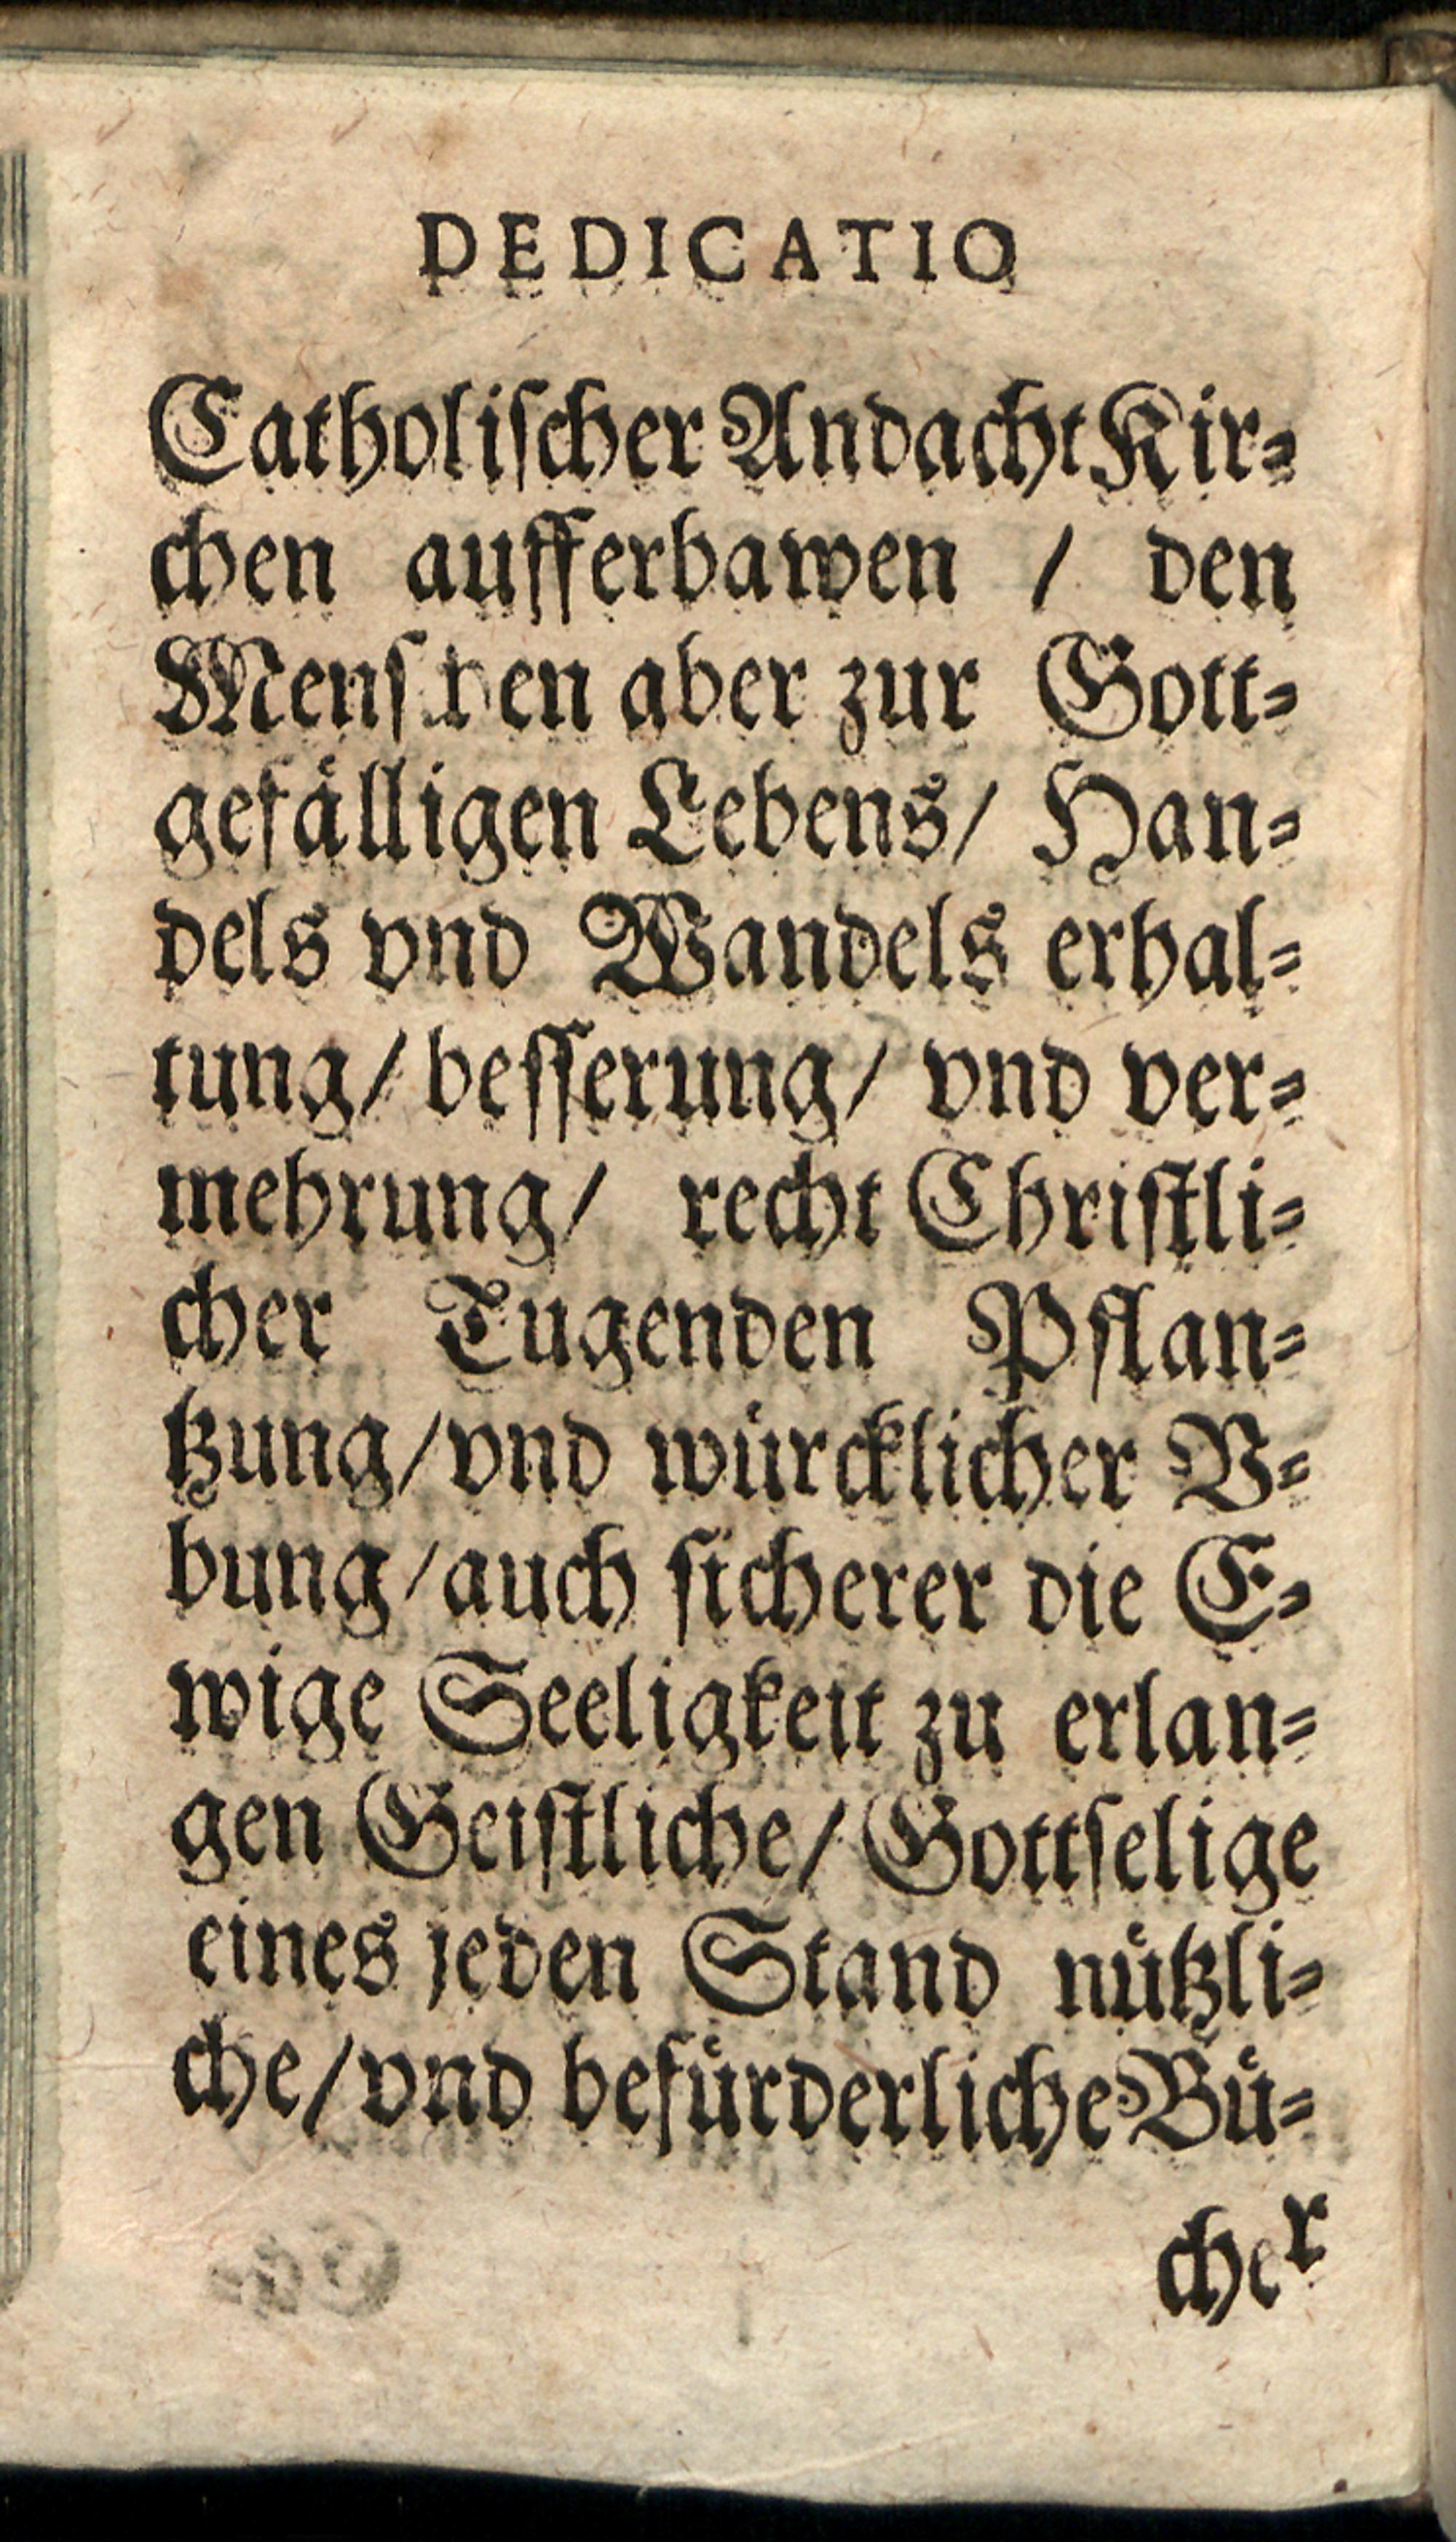 DEDICATIO
Catholiſcher Andacht Kir⸗
chen aufferbawen / den
Menſchen aber zur Gott⸗
gefaͤlligen Lebens/ Han⸗
dels vnd Wandels erhal⸗
tung/ beſſerung/ vnd ver⸗
mehrung/ recht Chriſtli⸗
cher Tugenden Pflan⸗
tzung/vnd wuͤrcklicher V⸗
bung/auch ſicherer die E⸗
wige Seeligkeit zu erlan⸗
gen Geiſtliche/ Gottſelige
eines jeden Stand nuͤtzli⸗
che/vnd befuͤrderliche Buͤ⸗
cher